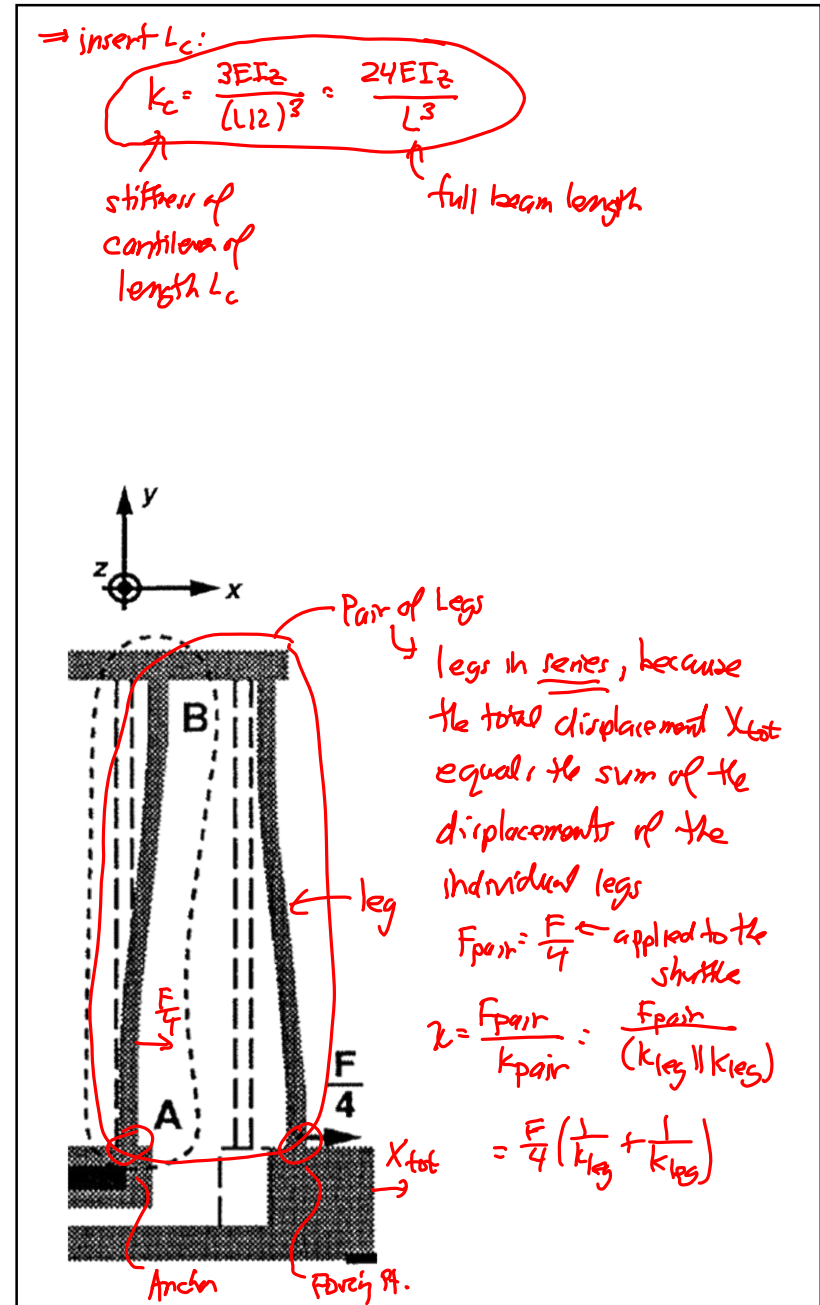 ⇒ insert Lc:
kc = 3EIz/(L/2)^3 = 24EIz/L^3
stiffness of
cantilever of
length Lc
full beam length
y
z
x
Pair of Legs
legs in series, because
the total displacement Xtot
equals the sum of the
displacements of the
individual legs
B
leg
Fpair = F/4 ← applied to the
shuttle
F/4
x = Fpair/kpair = Fpair/(kleg || kleg)
F/4
A
Xtot
= F/4 (1/kleg + 1/kleg)
Anchor
Forcing Pt.